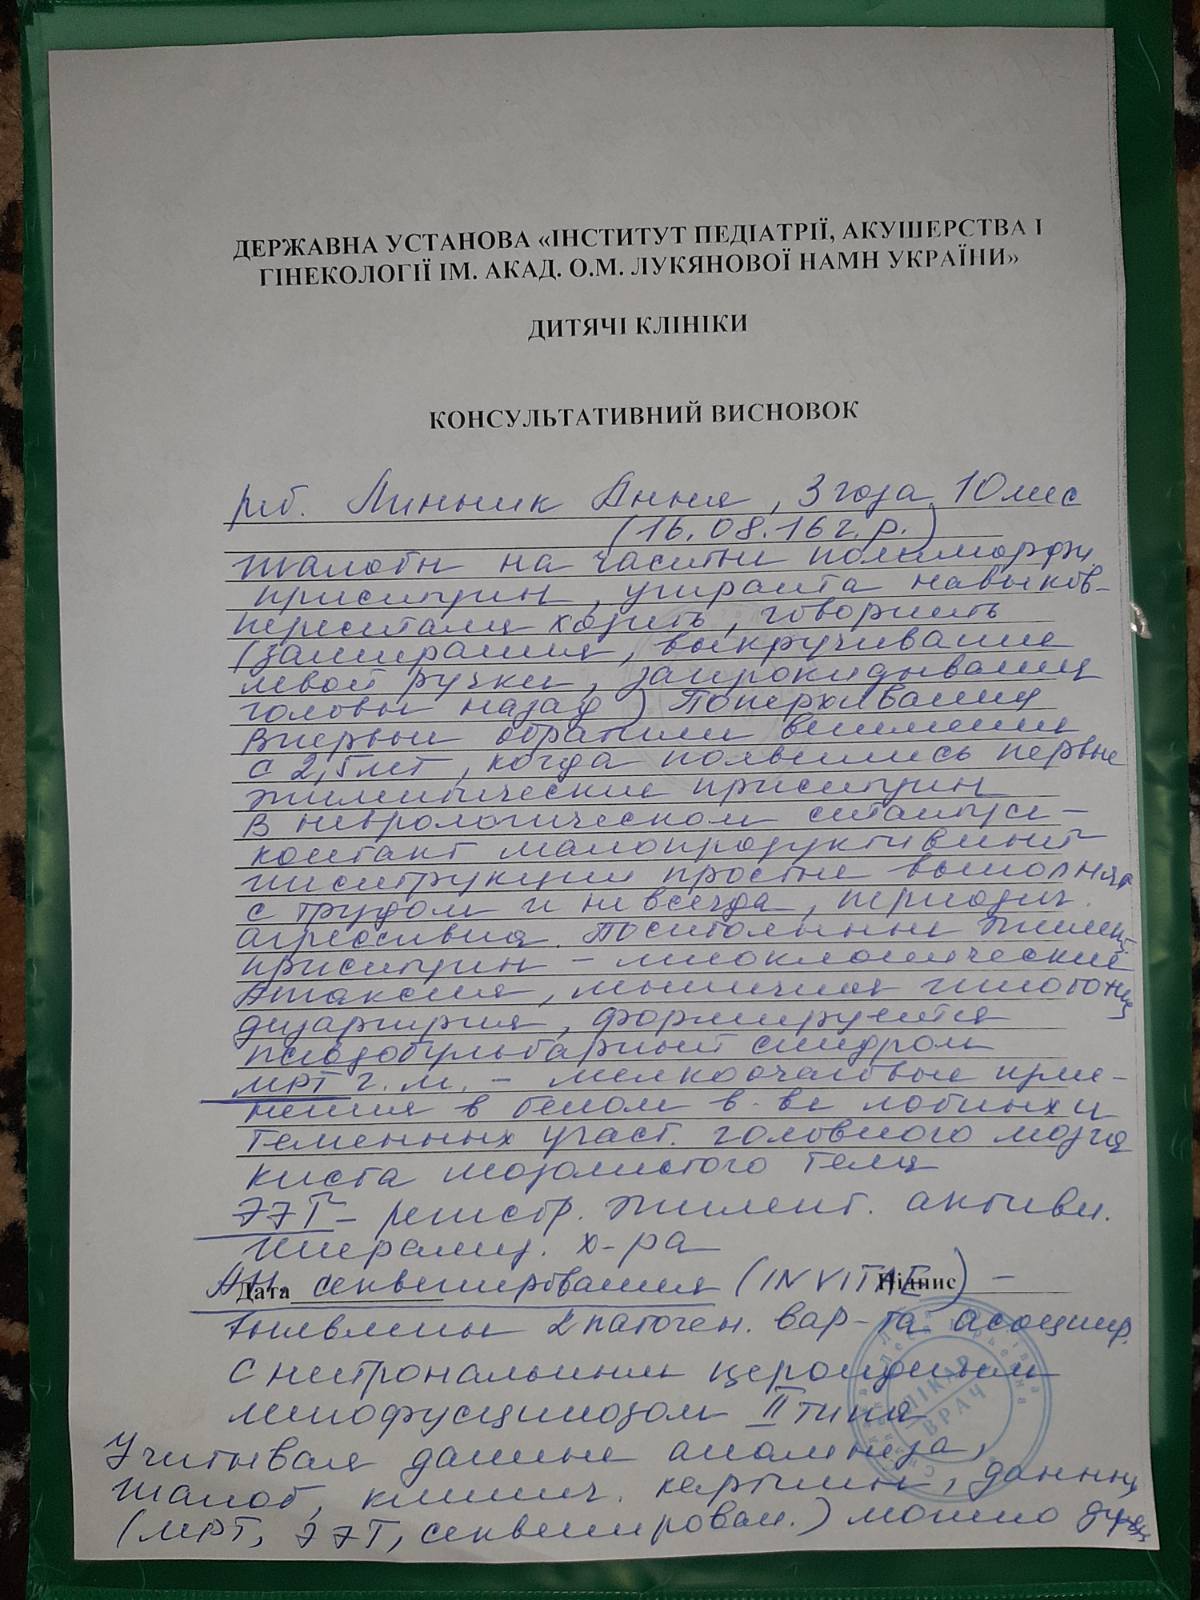 ДЕРЖАВНА УСТАНОВА «ІНСТИТУТ ПЕДІАТРІЇ, АКУШЕРСТВА І
ГІНЕКОЛОГІЇ ІМ. АКАД. О.М. ЛУКЯНОВОЇ НАМН УКРАЇНИ»
ДИТЯЧІ КЛІНІКИ
КОНСУЛЬТАТИВНИЙ ВИСНОВОК
реб. Линник Анна, 3 года 10 мес
(16.08.16 г.р.)
Жалобы на частые полиморфн
приступы, утрата навыков-
перестала ходить, говорить
(замирания, выкручивание
левой ручки, запрокидывания
головы назад) Поперхивания
Впервые обратили внимание
с 2,5 лет, когда появились первые
эпилептические приступы
В неврологическом статусе-
контакт малопродуктивный
инструкции простые выполняет
с трудом и не всегда, периодич.
агрессивна. Постоянные эпилепт
приступы - миоклонические
Атаксия, мышечная гипотония
дизартрия, формируется
псевдобульбарный синдром
МРТ г.м. - мелкоочаговые изме-
нения в белом в-ве лобных и
теменных участ. головного мозга
киста мозолистого тела
ЭЭГ - регистр. эпилепт. активн.
х-ра
Дата секвенирования (INVITAE) - Підпис
Выявлены 2 патоген. вар-та ассоциир.
с нейрональным цероидным
липофусцинозом II типа
ЛІКАР
ВРАЧ
Учитывая данные анамнеза,
жалоб, клинич. картины, данных
(МРТ, ЭЭГ, секвенирован.) можно